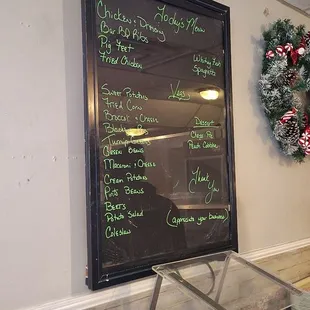 Today's Menu
Chicken & Dressing
Bar BQ Ribs
Pig Feet
Fried Chicken
Whiting Fish
Spaghetti
Vegs
Sweet Potatoes
Fried Corn
Broccoli & Cheese
Black
Turnip
Green Beans
Macaroni & Cheese
Cream Potatoes
Pinto Beans
Beets
Potato Salad
Coleslaw
Dessert
Chess Pie
Peach Cobbler
Thank
You
(appreciate your business)